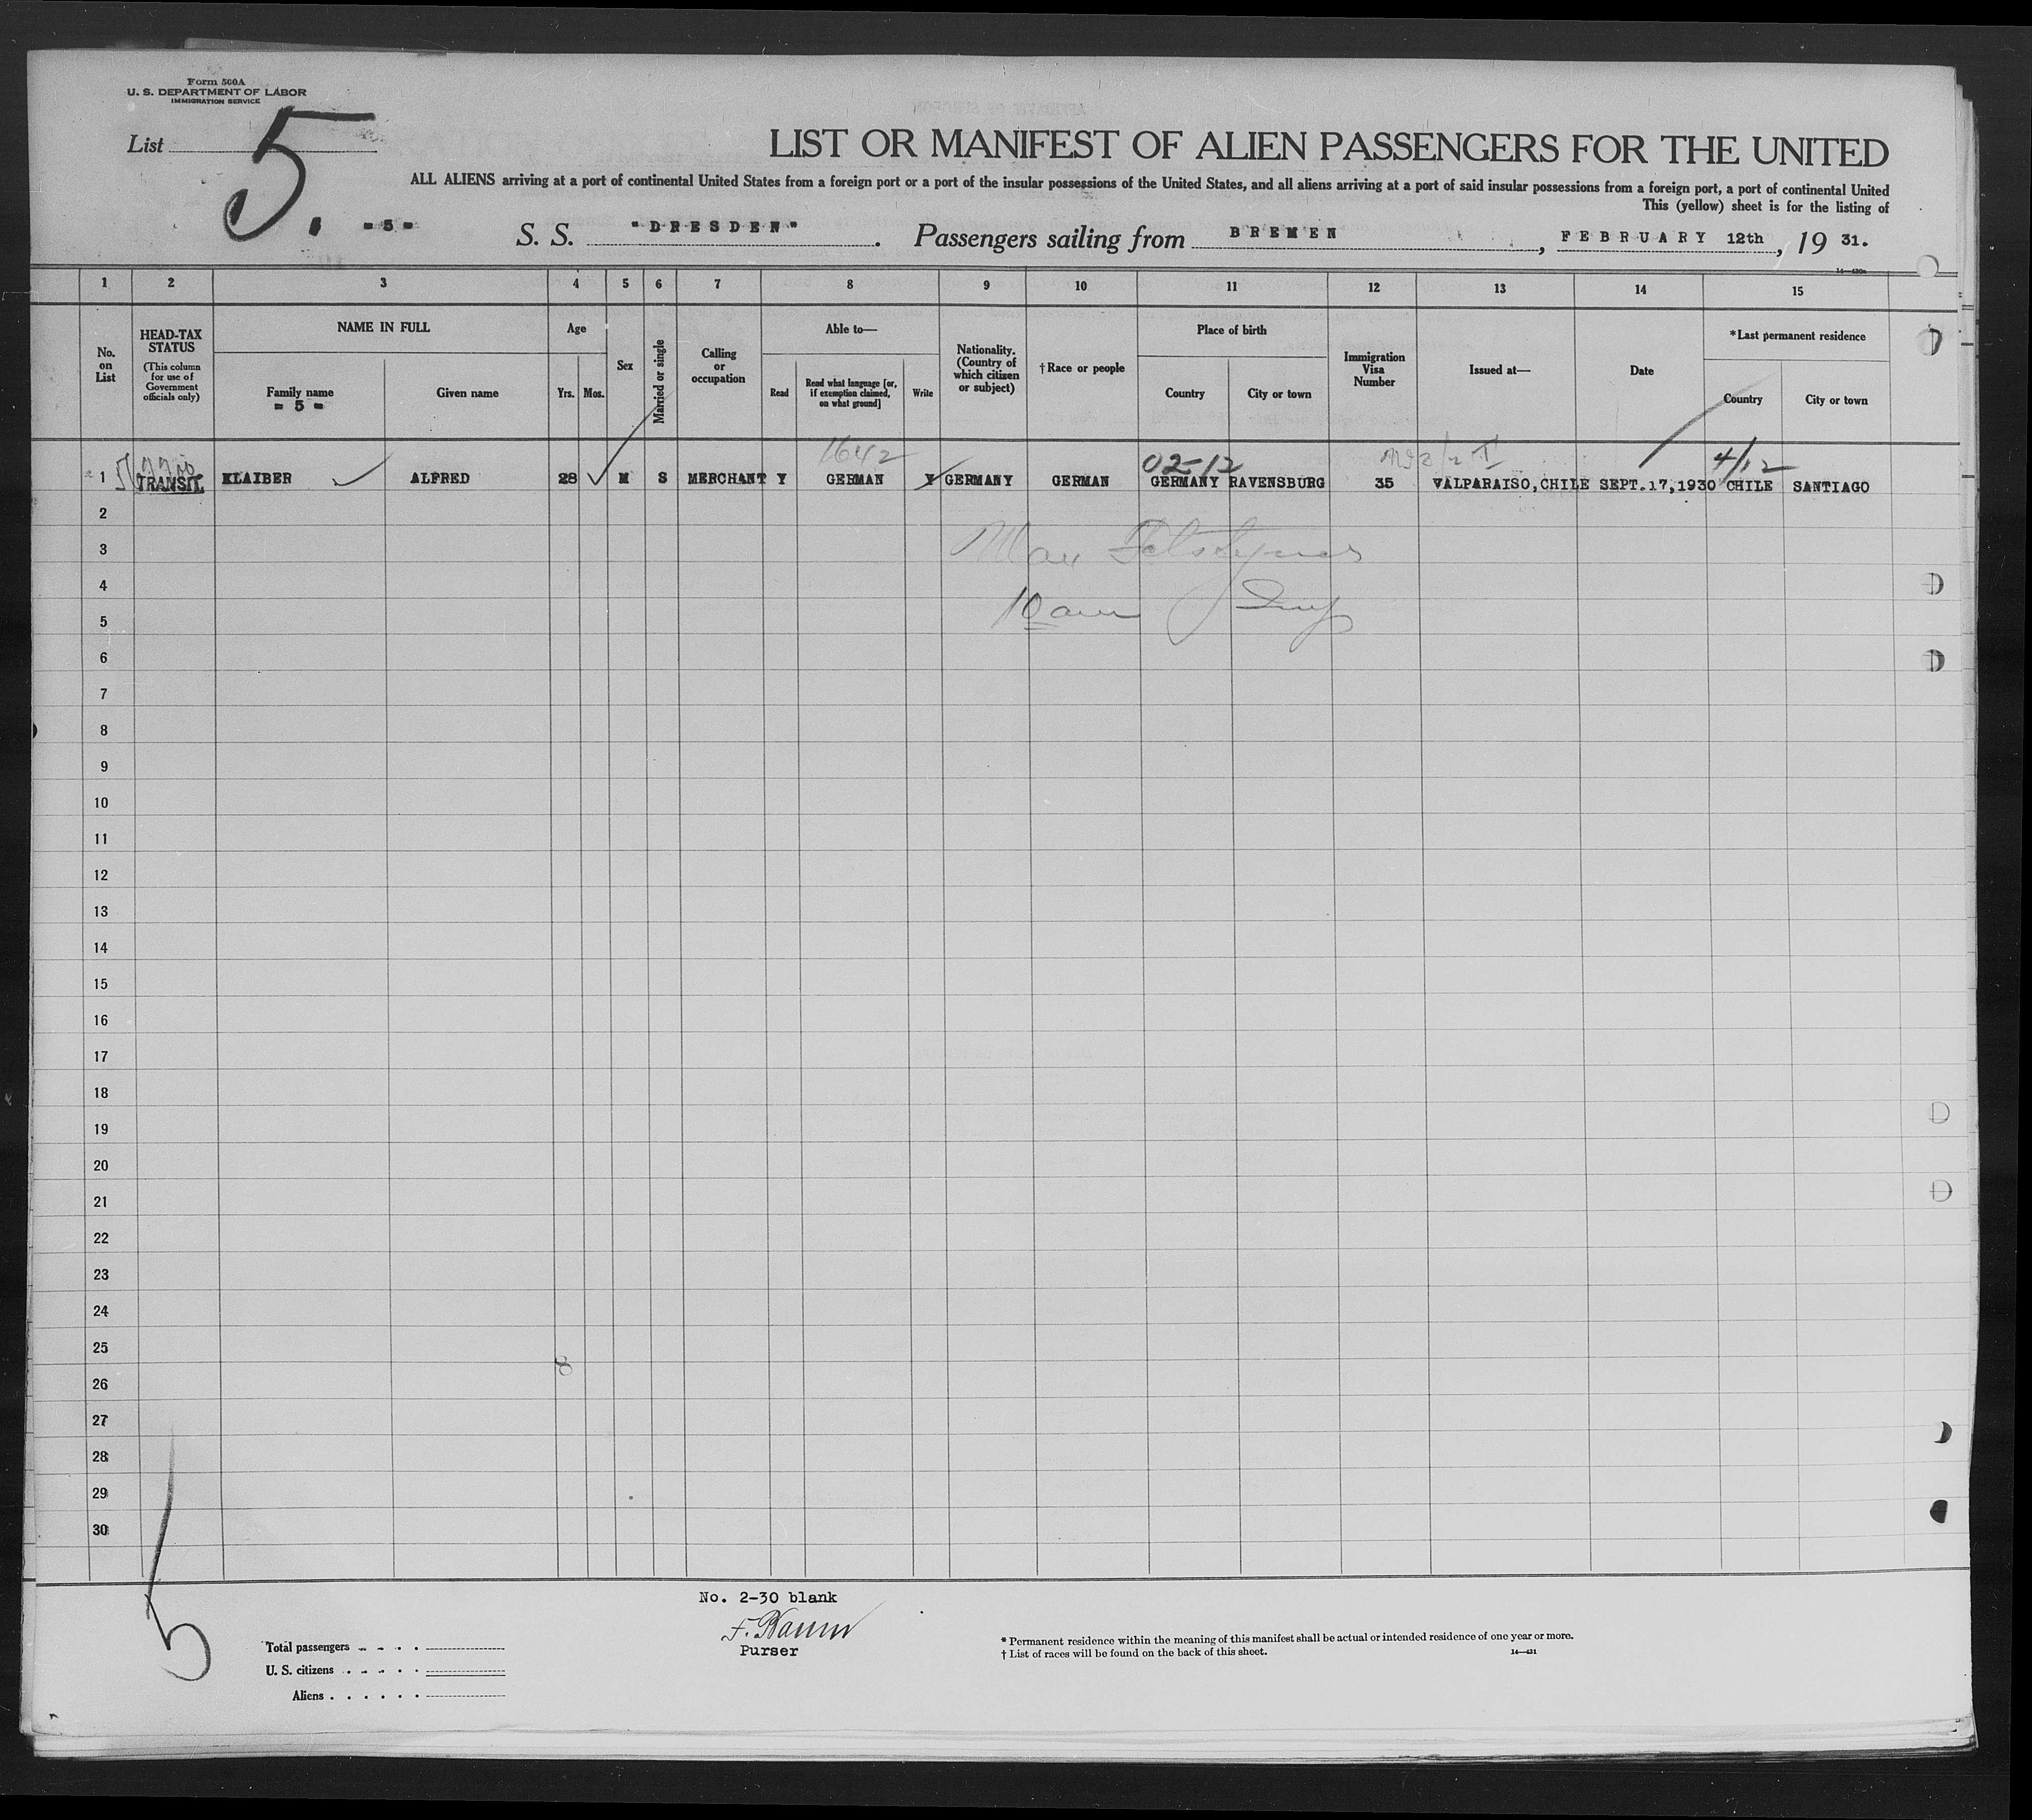 Form 500A
U. S. DEPARTMENT OF LABOR
IMMIGRATION SERVICE
List
5.
LIST OR MANIFEST OF ALIEN PASSENGERS FOR THE UNITED
ALL ALIENS arriving at a port of continental United States from a foreign port or a port of the insular possessions of the United States, and all aliens arriving at a port of said insular possessions from a foreign port, a port of continental United
This (yellow) sheet is for the listing of
= 5 = S. S. "DRESDEN". Passengers sailing from BREMEN, FEBRUARY 12th, 19 31.
1 2 3 4 5 6 7 8 9 10 11 12 13 14 15
No. on List
HEAD-TAX STATUS
(This column for use of Government officials only)
NAME IN FULL
Family name
= 5 =
Given name
Age
Yrs. Mos.
Sex
Married or single
Calling or occupation
Able to—
Read
Read what language [or, if exemption claimed, on what ground]
Write
Nationality. (Country of which citizen or subject)
†Race or people
Place of birth
Country
City or town
Immigration Visa Number
Issued at—
Date
*Last permanent residence
Country
City or town
1642 02-12 4/12
1 TRANSIT KLAIBER ALFRED 28 M S MERCHANT Y GERMAN Y GERMANY GERMAN GERMANY RAVENSBURG 35 VALPARAISO, CHILE SEPT.17,1930 CHILE SANTIAGO
2
3 Max
4
5 10 am Insp
6
7
8
9
10
11
12
13
14
15
16
17
18
19
20
21
22
23
24
25
8
26
27
28
29
30
5
No. 2-30 blank
Purser
Total passengers
U. S. citizens
Aliens
* Permanent residence within the meaning of this manifest shall be actual or intended residence of one year or more.
† List of races will be found on the back of this sheet.
14—431